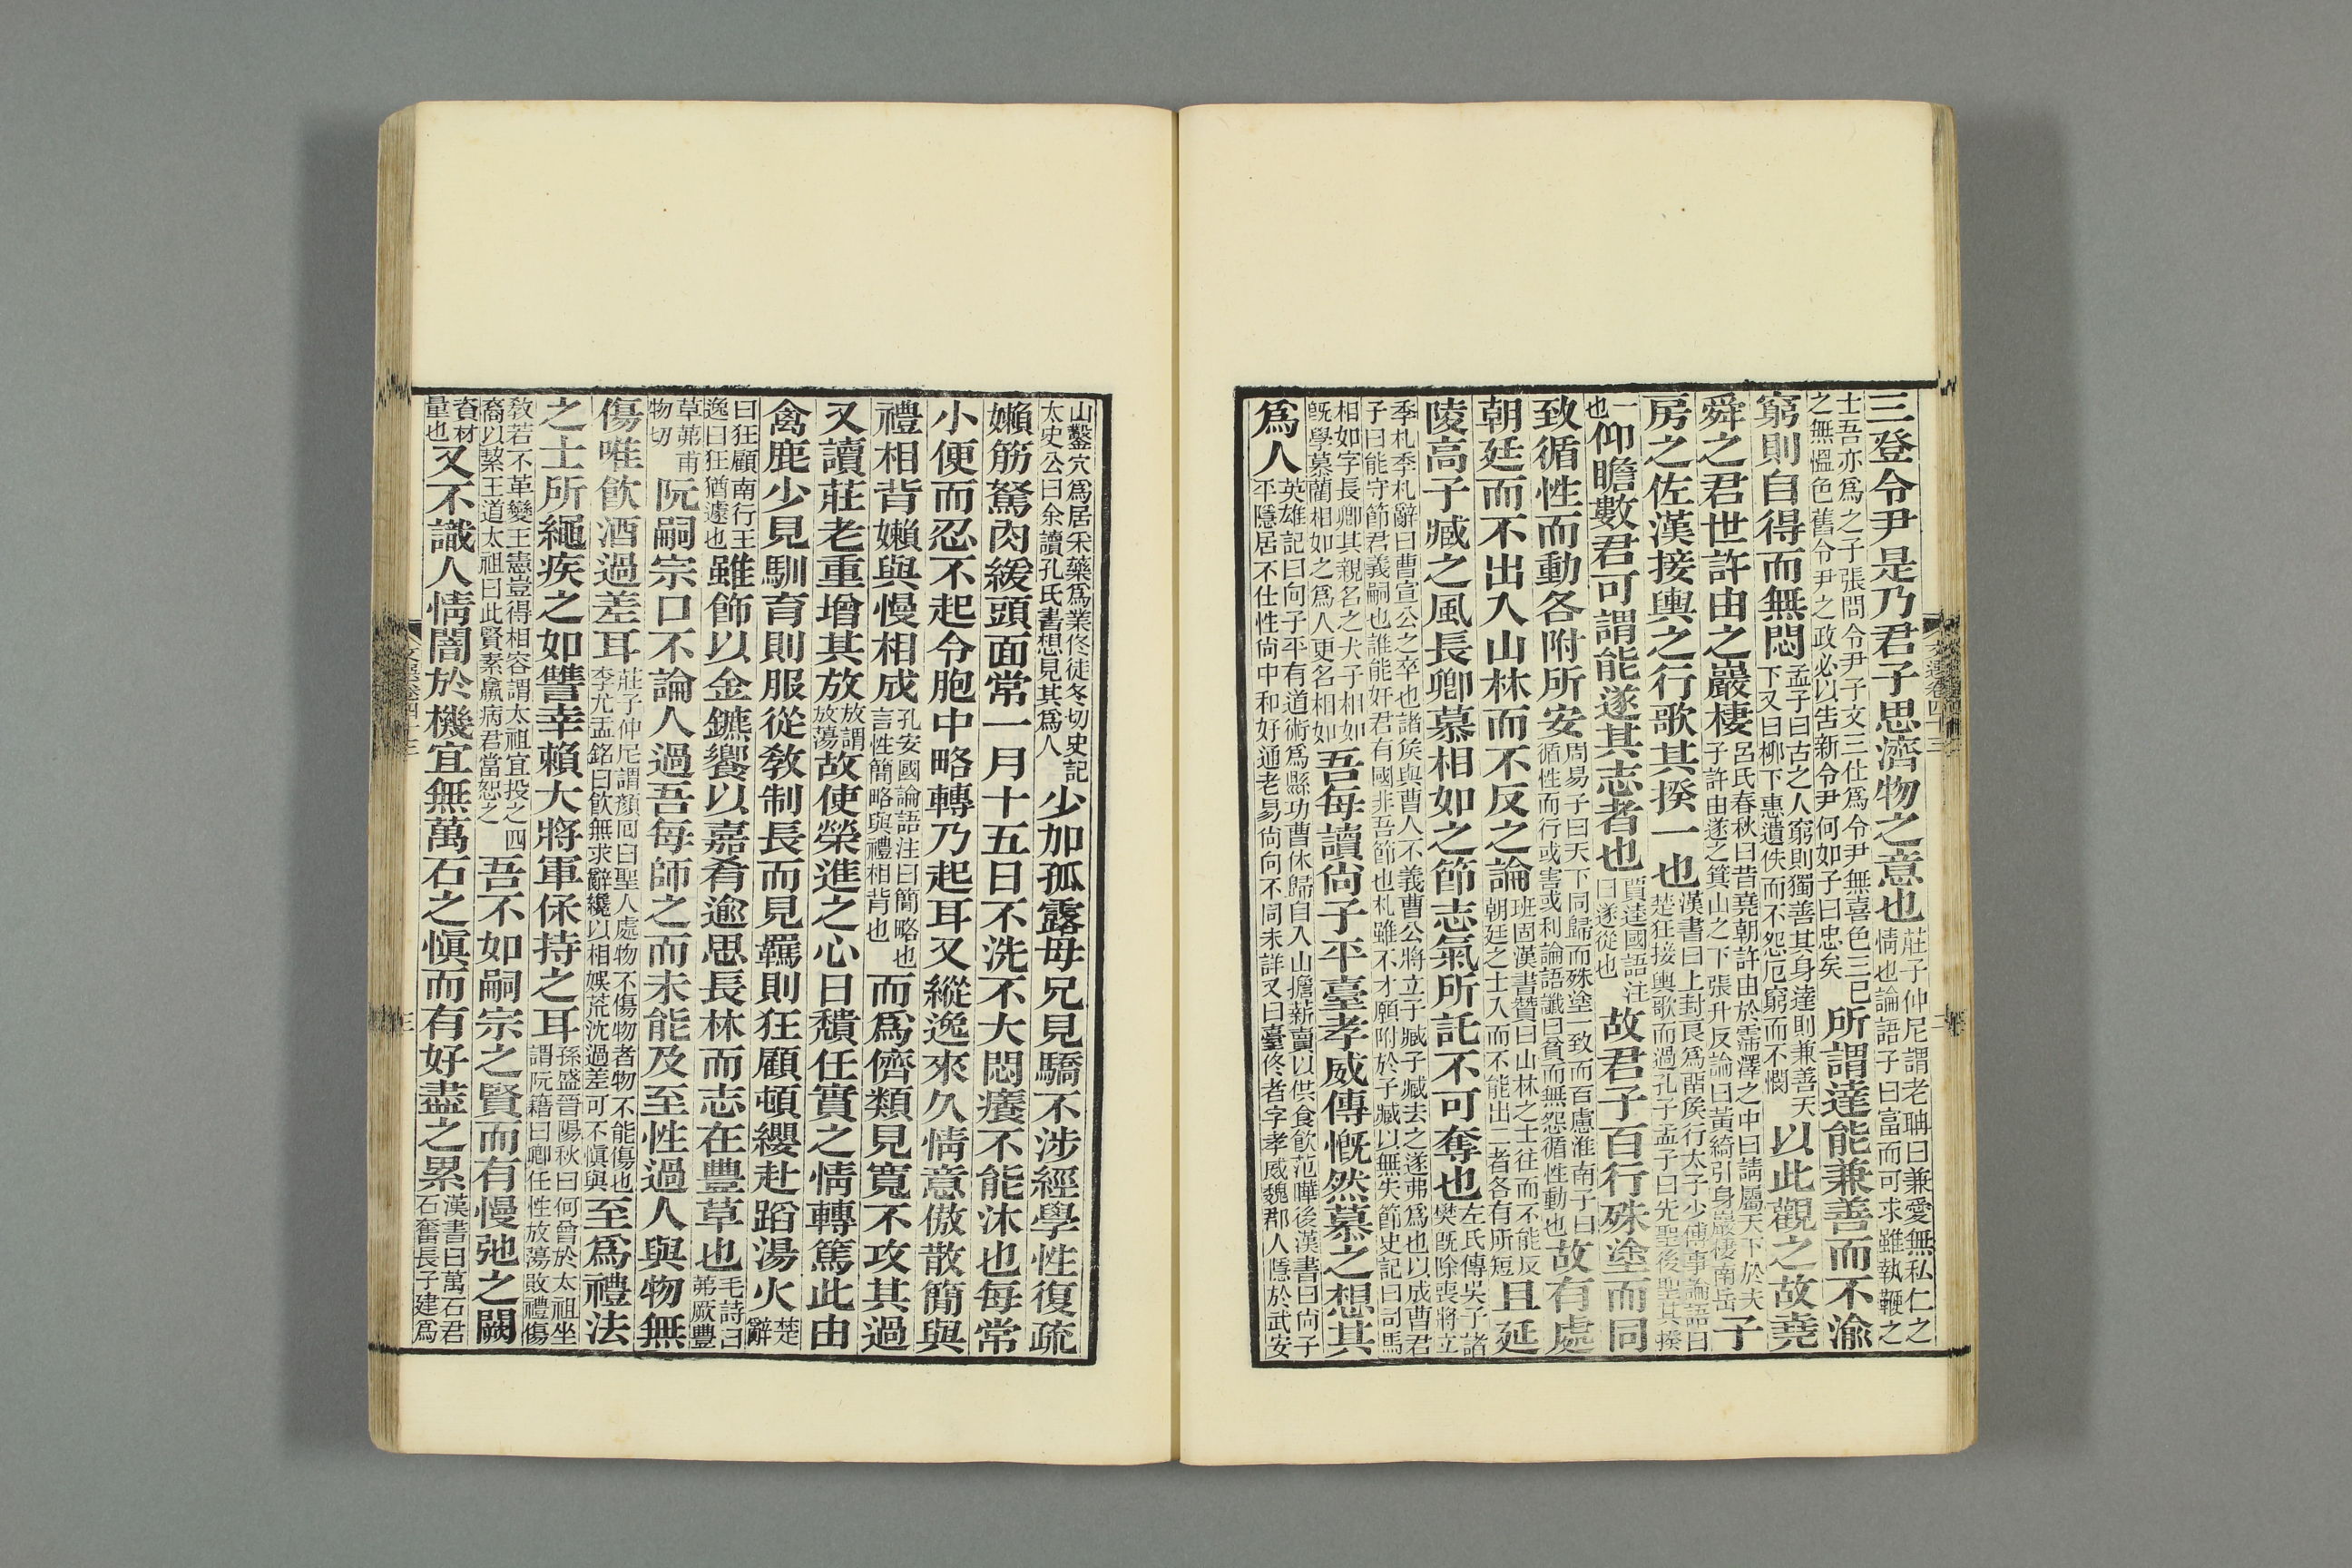 三登令尹是乃君子思濟物之意也莊子仲尼謂老聃曰兼愛無私仁之情也論語子曰富而可求雖執鞭之
士吾亦爲之子張問令尹子文三仕爲令尹無喜色三已之無慍色舊令尹之政必以告新令尹何如子曰忠矣所謂達能兼善而不渝
窮則自得而無悶孟子曰古之人窮則獨善其身達則兼善天下又曰柳下惠遺佚而不怨厄窮而不憫以此觀之故堯
舜之君世許由之巖棲呂氏春秋曰昔堯朝許由於沛澤之中曰請屬天下於夫子許由遂之箕山之下張升反論曰黃綺引身巖棲南岳子
房之佐漢接輿之行歌其揆一也漢書曰上封良爲留侯行太子少傅事論語曰楚狂接輿歌而過孔子孟子曰先聖後聖其揆
一也仰瞻數君可謂能遂其志者也賈逵國語注曰遂從也故君子百行殊塗而同
致循性而動各附所安周易子曰天下同歸而殊塗一致而百慮淮南子曰循性而行或害或利論語讖曰貧而無怨循性動也故有處
朝廷而不出入山林而不反之論班固漢書贊曰山林之士往而不能反朝廷之士入而不能出二者各有所短且延
陵高子臧之風長卿慕相如之節志氣所託不可奪也左氏傳吳子諸樊旣除喪將立
季札季札辭曰曹宣公之卒也諸侯與曹人不義曹公將立子臧子臧去之遂弗爲也以成曹君子曰能守節君義嗣也誰能奸君有國非吾節也札雖不才願附於子臧以無失節史記曰司馬
相如字長卿其親名之犬子相如旣學慕藺相如之爲人更名相如吾每讀尙子平臺孝威傳慨然慕之想其
爲人英雄記曰向子平有道術爲縣功曹休歸自入山擔薪賣以供食飮范曄後漢書曰尙子平隱居不仕性尙中和好通老易尙向不同未詳又曰臺佟者字孝威魏郡人隱於武安
山鑿穴爲居采藥爲業佟徒冬切史記太史公曰余讀孔氏書想見其爲人少加孤露母兄見驕不涉經學性復疏
嬾筋駑肉緩頭面常一月十五日不洗不大悶癢不能沐也每常
小便而忍不起令胞中略轉乃起耳又縱逸來久情意傲散簡與
禮相背嬾與慢相成孔安國論語注曰簡略也言性簡略與禮相背也而爲儕類見寬不攻其過
又讀莊老重增其放放謂放蕩故使榮進之心日穨任實之情轉篤此由
禽鹿少見馴育則服從敎制長而見羈則狂顧頓纓赴蹈湯火楚辭
曰狂顧南行王逸曰狂猶遽也雖飾以金鑣饗以嘉肴逾思長林而志在豐草也毛詩曰茀厥豐
草茀甫物切阮嗣宗口不論人過吾每師之而未能及至性過人與物無
傷唯飮酒過差耳莊子仲尼謂顏回曰聖人處物不傷物者物不能傷也李尤盂銘曰飮無求辭纔以相娛荒沈過差可不愼與至爲禮法
之士所繩疾之如讐幸賴大將軍保持之耳孫盛晉陽秋曰何曾於太祖坐謂阮籍曰卿任性放蕩敗禮傷
敎若不革變王憲豈得相容謂太祖宜投之四裔以絜王道太祖曰此賢素羸病君當恕之吾不如嗣宗之賢而有慢弛之闕
資材量也又不識人情闇於機宜無萬石之愼而有好盡之累漢書曰萬石君石奮長子建爲